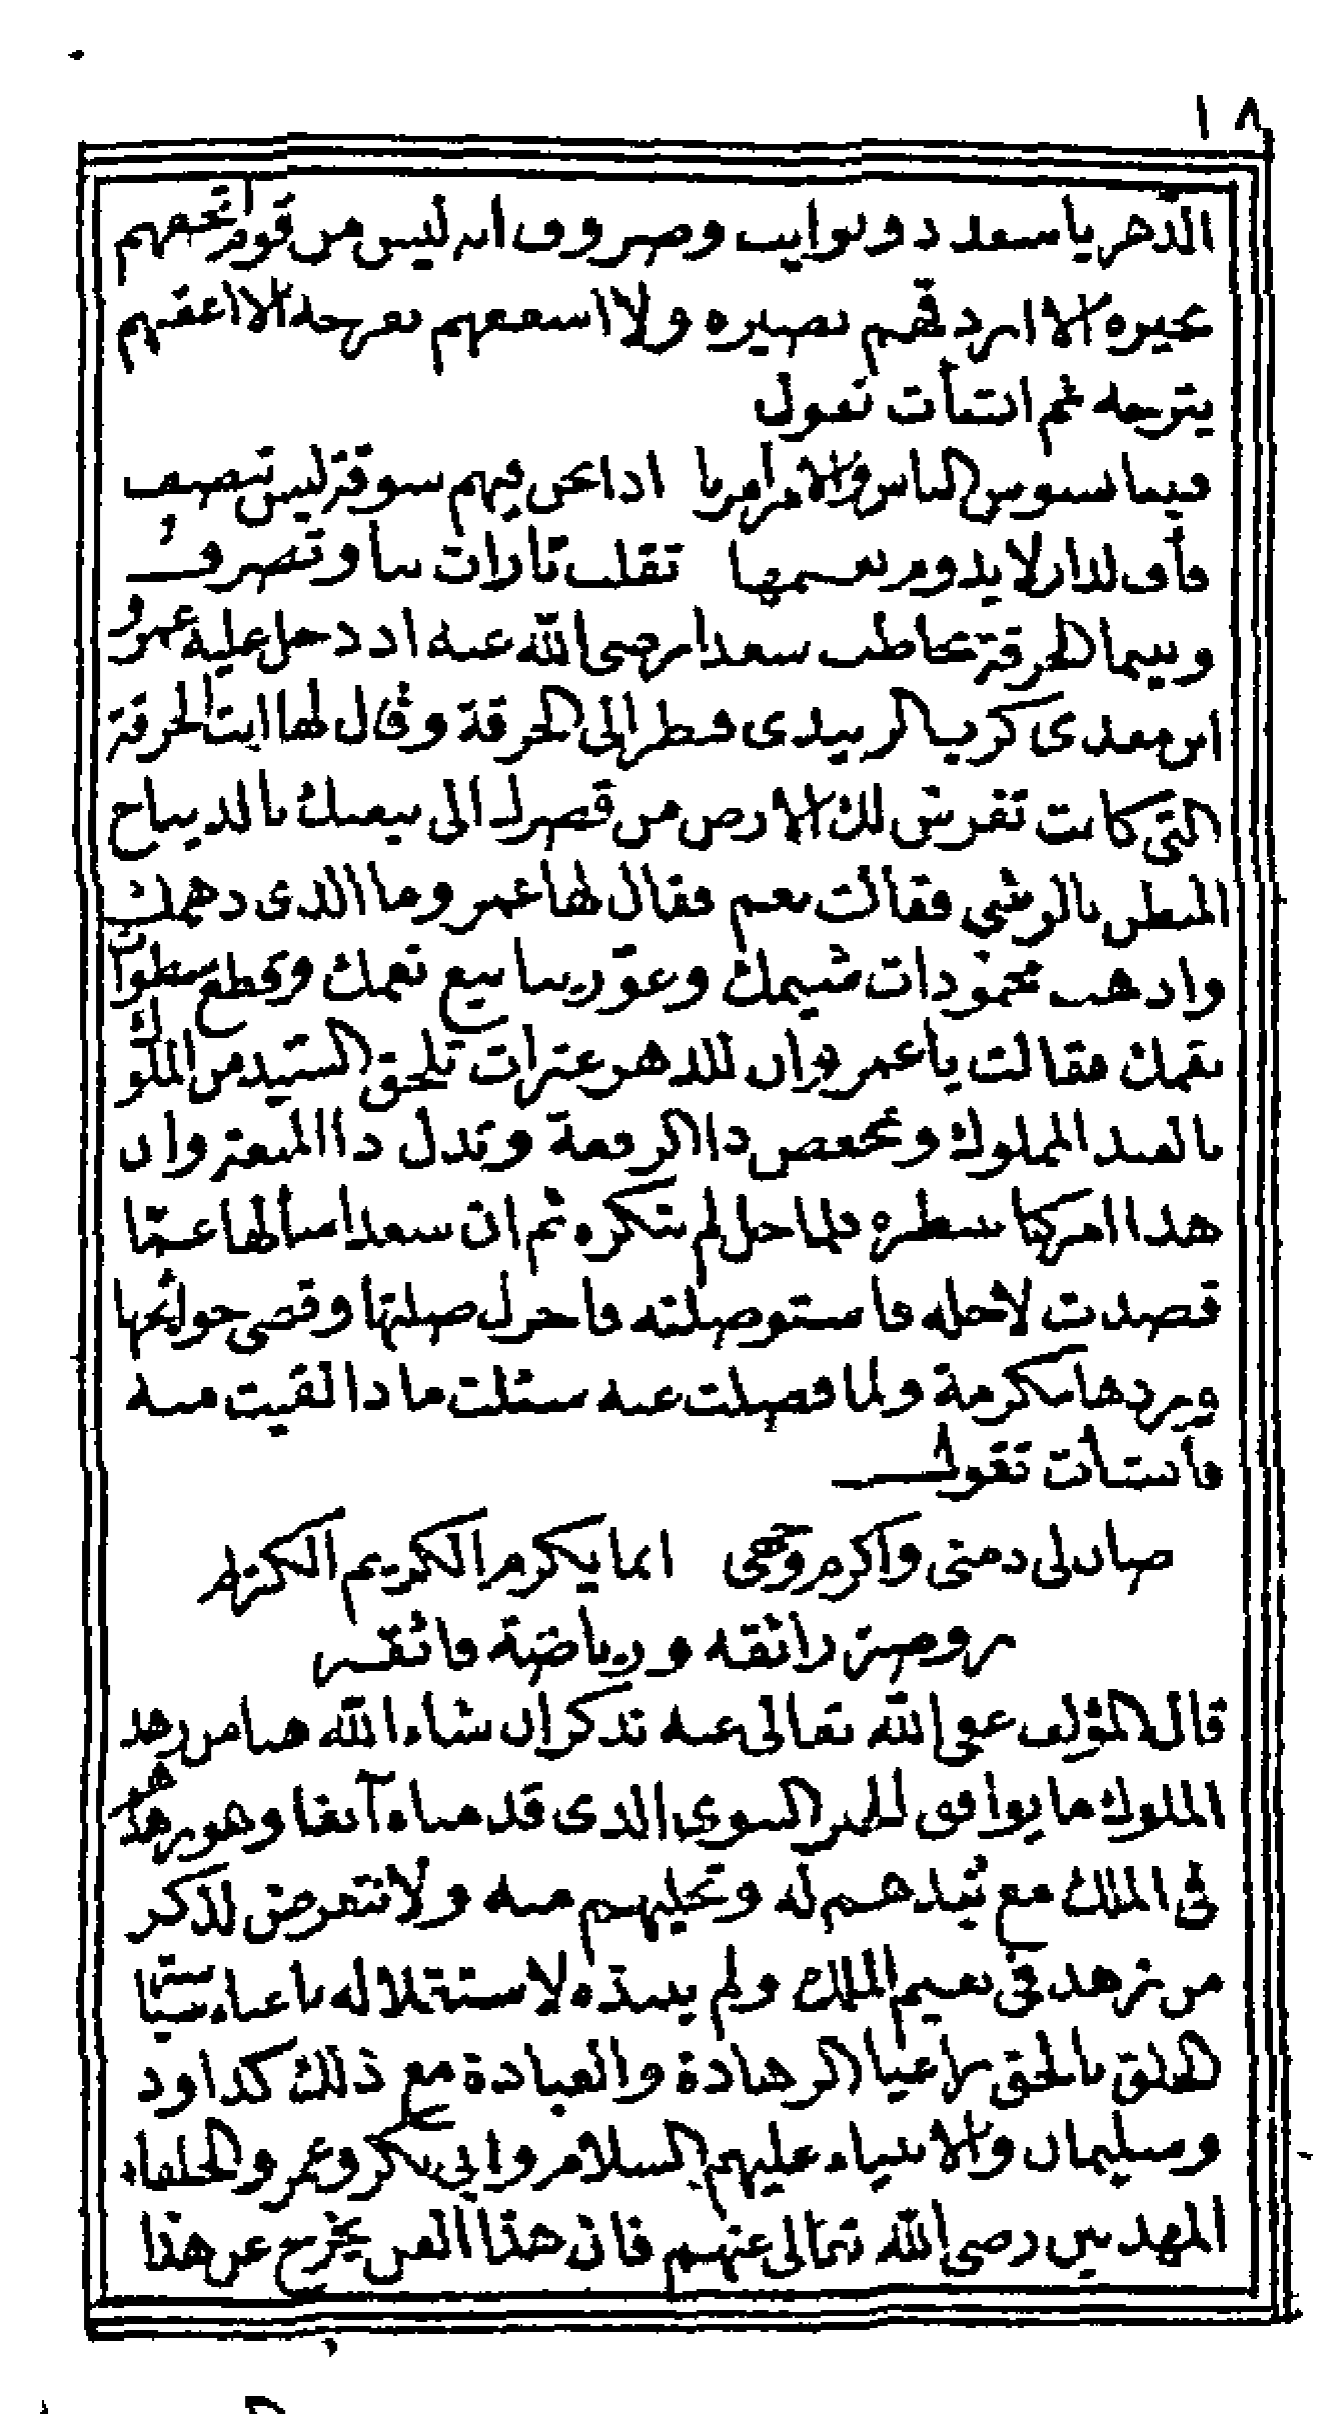 ١٨
الدهر يا سعد ذو نوايب وصروف انه ليس من قوم اتحفهم
بحيره الا اردفهم بصيره ولا اسعفهم بفرحه الا اعقبهم
بترحه ثم انشأت تقول
فبينا نسوس الناس والامر امرنا اذا نحن فيهم سوقة ليس ننصف
فأف لدار لا يدوم نعيمها تقلب تارات بنا وتصرف
وبينما الحرقة تخاطب سعدا رضى الله عنه اذ دخل عليه عمرو
ابن معدى كرب الزبيدى فنظر الى الحرقة وقال لها انت الحرقة
التى كانت تفرش لك الارض من قصرك الى بيعتك بالديباج
المبطن بالوشي فقالت نعم فقال لها عمرو وما الذى دهمك
واذهب محمودات شيمك وغور ينابيع نعمك وقطع سطوات
نقمك فقالت يا عمرو ان للدهر عثرات تلحق السيد من الملوك
بالعبد المملوك وتخفض ذا الرفعة وتذل ذا المنعة وان
هذا امر كنا ننتظره فلما حل لم ننكره ثم ان سعدا سألها عما
قصدت لاجله فاستوصلته فاجزل صلتها وقضى حوائجها
وردها مكرمة ولما فصلت عنه سئلت ماذا لقيت منه
فأنشأت تقول
صان لى ذمتى واكرم وجهى انما يكرم الكريم الكريم
روضة رائقه ورياضة فائقه
قال المؤلف عفى الله تعالى عنه نذكر ان شاء الله هنا من زهد
الملوك ما يوافق للخبر النبوى الذى قدمناه آنفا وهو زهدهم
فى الملك مع نبذهم له وتخليهم منه ولا نتعرض لذكر
من زهد فى نعيم الملك ولم ينبذه لاستقلاله باعباء سياسة
الخلق بالحق راعيا الزهادة والعبادة مع ذلك كداود
وسليمان والانبياء عليهم السلام وابى بكر وعمر والخلفاء
المهديين رضى الله تعالى عنهم فان هذا الفن يخرج عن هذا